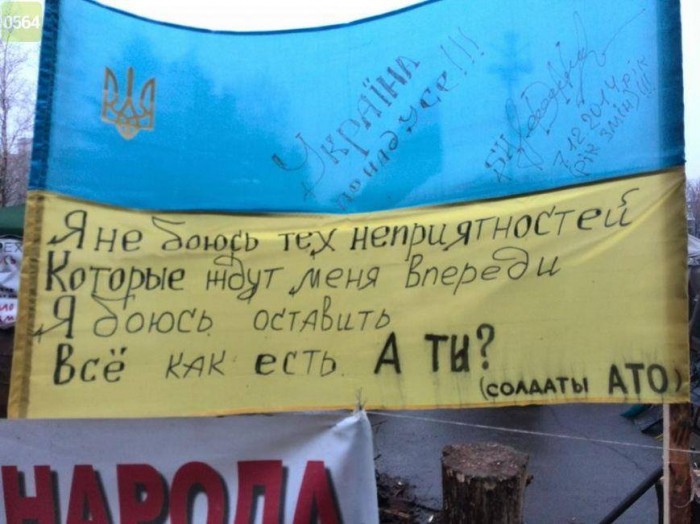 0564
Україна
понад усе!!!
7.12.2014 рік
рік змін!!!
Я не боюсь тех неприятностей
Которые ждут меня впереди
Я боюсь оставить
Всё как есть. А ты?
(солдаты АТО)
НАРОДА